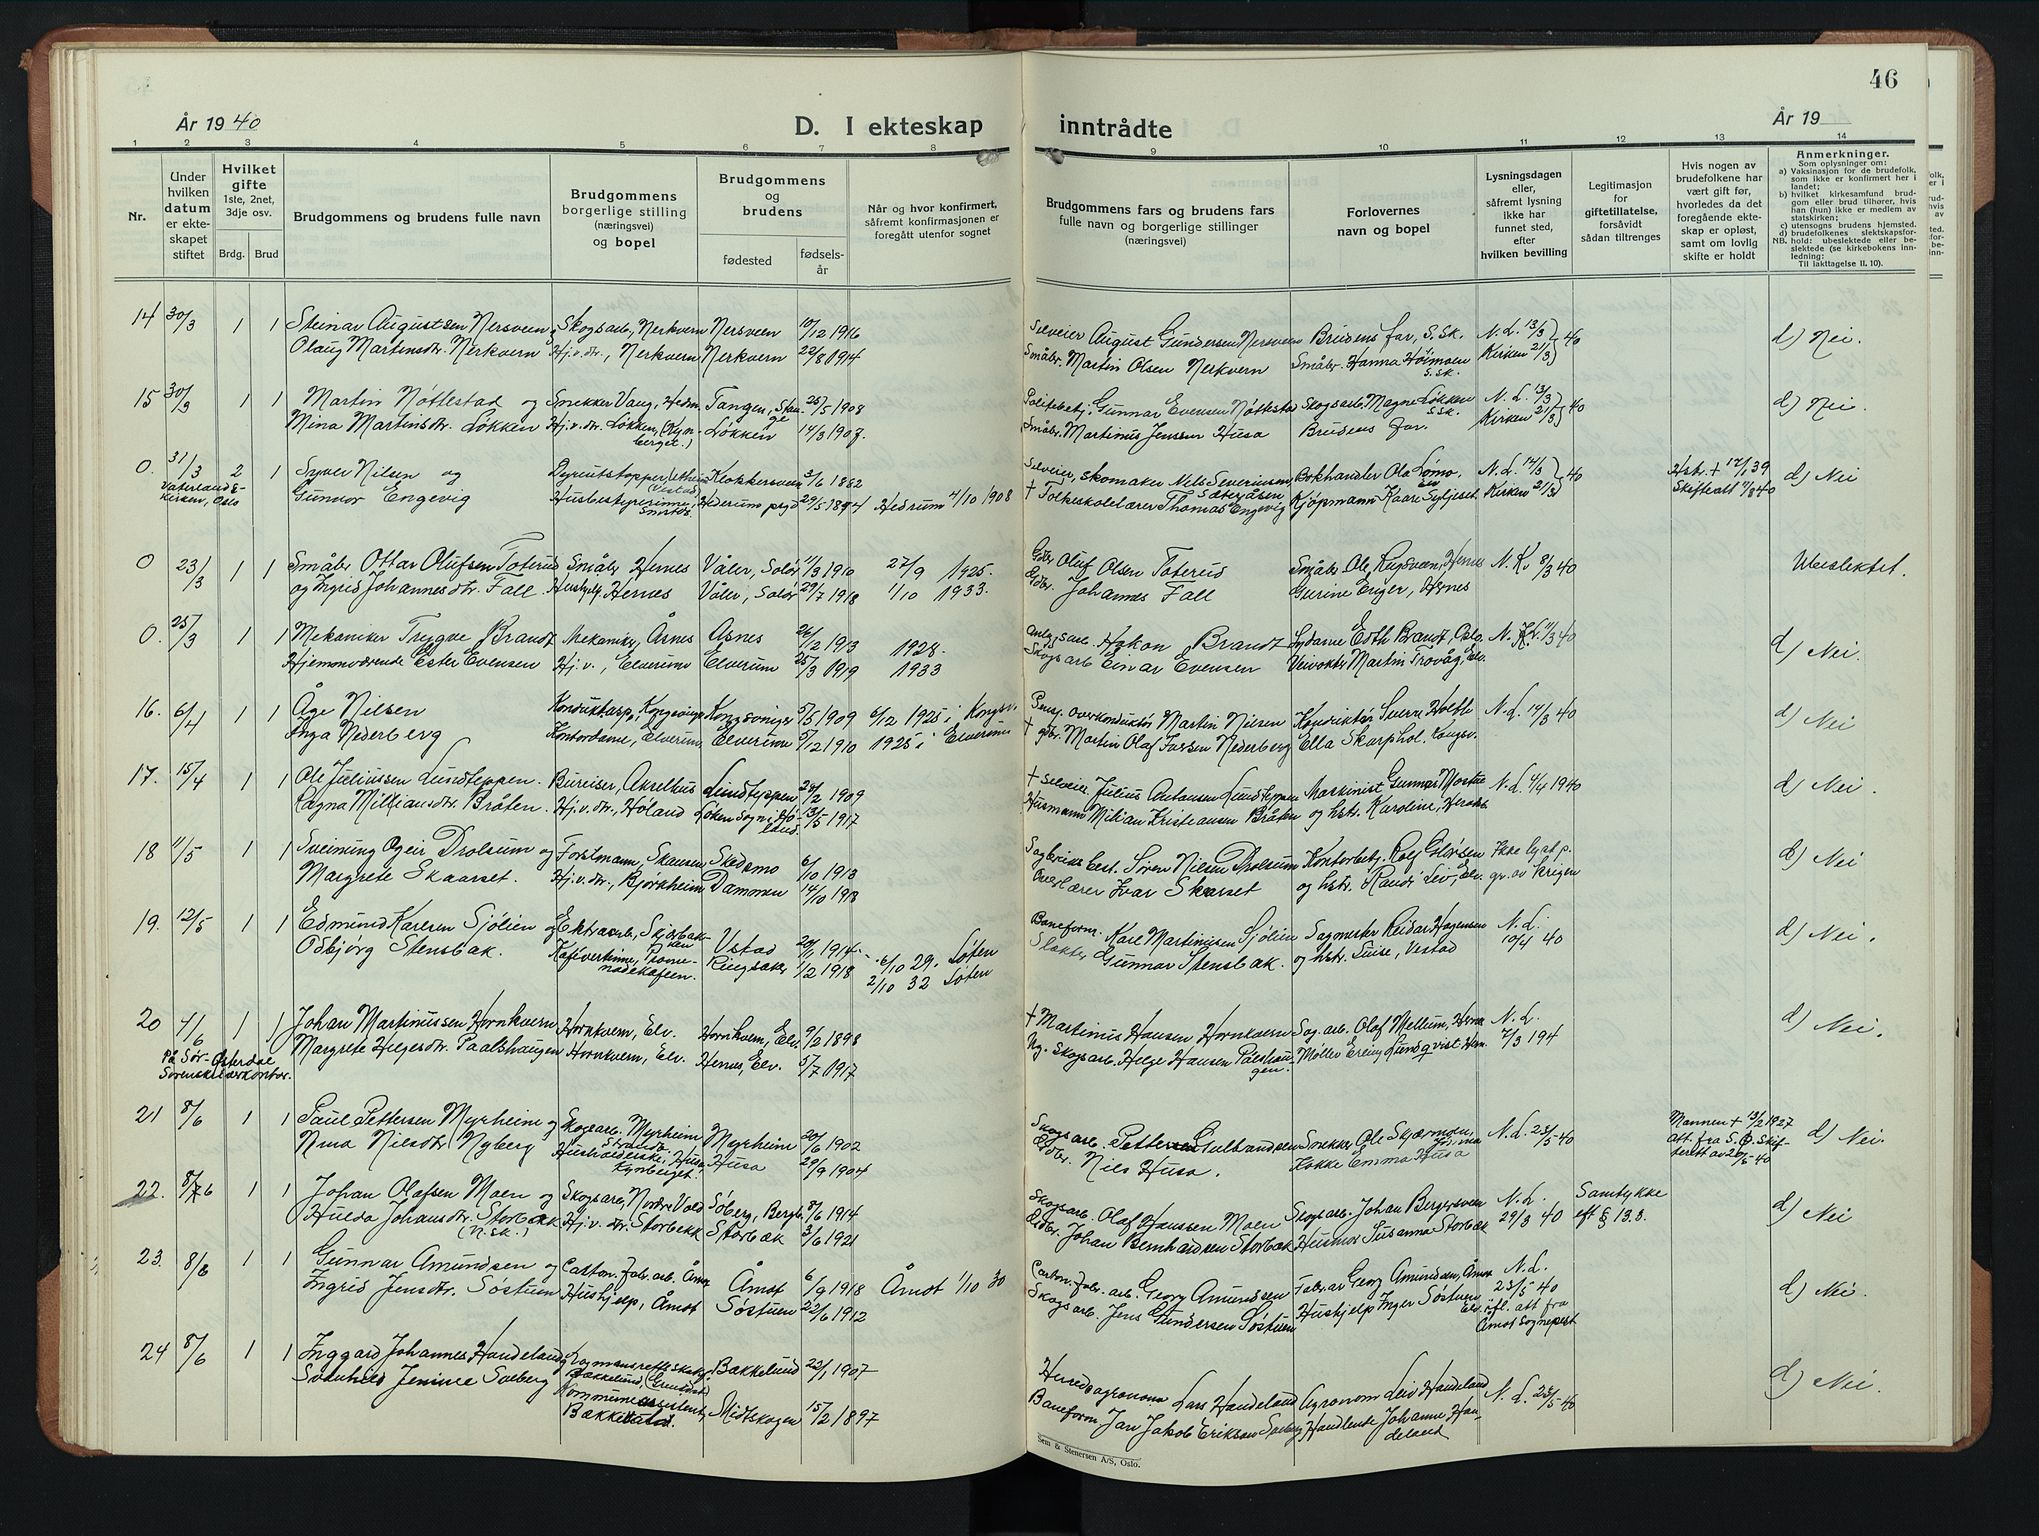 46
År 1940
D. I ekteskap inntrådte
År 19
1 2 3 4 5 6 7 8 9 10 11 12 13 14
Nr.
Under hvilken datum er ekteskapet stiftet
Hvilket gifte 1ste, 2net, 3dje osv.
Brdg. Brud
Brudgommens og brudens fulle navn
Brudgommens borgerlige stilling (næringsvei) og bopel
Brudgommens og brudens
fødested
fødselsår
Når og hvor konfirmert, såfremt konfirmasjonen er foregått utenfor sognet
Brudgommens fars og brudens fars fulle navn og borgerlige stillinger (næringsvei)
Forlovernes navn og bopel
Lysningsdagen eller, såfremt lysning ikke har funnet sted, efter hvilken bevilling
Legitimasjon for giftetillatelse, forsåvidt sådan tiltrenges
Hvis nogen av brudefolkene har vært gift før, hvorledes da det foregående ekteskap er opløst, samt om lovlig skifte er holdt
Anmerkninger.
Som oplysninger om:
a) Vaksinasjon for de brudefolk, som ikke er konfirmert her i landet;
b) hvilket kirkesamfund brudgom eller brud tilhører, hvis han (hun) ikke er medlem av statskirken;
c) utensogns brudens hjemsted.
d) brudefolkenes slektskapsforhold: ubeslektede eller beslektede (se kirkebokens innledning:
NB. Til iakttagelse II. 10).
14 30/3 1 1 Steinar Augustsen Nersveen og Skogsarb., Nerkvern Nersveen 10/12 1916 Selveier August Gundersen Nersveen Brudens far, S.Sk. N.L. 13/3 40 d) Nei.
Olaug Martinsdtr. Nerkvern Hj.v. dtr., Nerkvern Nerkvern 22/8 1914 Småbr. Martin Olsen Nerkvern Småbr. Hanna S.Sk. Kirken 21/3
15 30/3 1 1 Martin Nøttestad og Snekker Vang, Hedm. Tangen, Stange 25/5 1908 Gunnar Evensen Nøttestad Skogsarb. Magne Løkken S.Sk. N.L. 13/3 40 d) Nei.
Mina Martinsdtr. Løkken Hj.v. dtr. Løkken, (Kynberget.) Løkken 14/3 1907. Småbr. Martinus Jenssen Husa Brudens far. Kirken 21/3
0. 31/3 2 1 Syver Nilsen og Klokkersveen 3/6 1882 Selveier, skomaker Nils Severinsen Sæteråsen Bokhandler Ola Lømo. N.L. 14/3 40 Hsk. + 12/1 39 d) Nei
Vaterlands-kirken, Oslo Gunvor Engevig Husbestyrerinne, Hedrum prgd 29/5 1894 Hedrum 4/10 1908 + Folkeskolelærer Thomas Engevig Kjøpmann Kaare Syljeset. Kirken 21/3 Skifteatt 11/3 40
0 23/3 1 1 Småbr Ottar Olufsen Toterud Småbr Hernes Våler, Solør 11/3 1910 27/9 1925. Gbr Oluf Olsen Toterud Småbr. Ole Rugsveen, Hernes N.K. 8/3 40 Ubeslektet.
og Ingrid Johannesdtr. Fall. Hushj. Hernes Våler, Solør 29/7 1918 1/10 1933. Gdbr. Johannes Fall Gurine Enger, Hernes
0. 25/3 1 1 Mekaniker Trygve Brandt Mekaniker, Åsnes Åsnes 26/12 1913 1928. Anlegsarb. Håkon Brandt Sydame Edth Brandt, Oslo N.L. 11/3 40 d) Nei.
Hjemmeværende Ester Evensen Hj.v., Elverum Elverum 25/3 1919 1933 Skogsarb Einar Evensen Veivokter Martin Trovåg, Elv.
16. 6/4 1 1 Åge Nilsen Konduktørasp., Kongsvinger Kongsvinger 5/5 1909 6/12 1925 i Kongsv. Pensj. overkonduktør Martin Nilsen Konduktør Sverre Holth N.L. 14/3 40 d) Nei
Inga Nederberg Kontordame, Elverum Elverum 5/12 1910 1925 i Elverum + gbr. Martin Olaf Larsen Nederberg Ella Skarphol. Kongsv.
17. 15/4 1 1 Ole Juliussen Lundteppen. Bureiser, Akselhus Lundteppen 24/2 1909 + Selveier Julius Antonsen Lundteppen Maskinist Gunnar N.L. 4/4 1940 d) Nei.
Ragna Milliansdtr. Bråten. Hj.v. dtr., Høland Løken sogn, Høland 13/5 1917 Husmann Milian Kristiansen Bråten og hstr. Karoline, Heradsb.
18 11/5 1 1 Sveinung Ogeir Drolsum og Forstmann, Skansen Skedsmo 6/10 1913 Sagbruksbest. Søren Nilsen Drolsum Kontorbetj. Rolf Ikke lyst p. d) Nei
Margrete Skaarset. Hj.v. dtr., Bjørkheim Dammen 14/10 1918 Overlærer Ivar Skarset og hstr. Randi Leiv, Elv. gr. av Krigen
19. 12/5 1 1 Edmund Karlsen Sjølien og Ekstraarb., Skjærbekken Ustad 20/1 1914. 6/10 29. Løten Baneform. Karl Martinusen Sjølien Sagmester Reidar Hagensen N.L. d) Nei.
Odbjørg Stensbak. Kafévertinne, Promenadekafeen. Ringsaker 1/2 1918 2/10 32 Løten Slakter Gunnar Stensbak. og hstr. Luise, Vestad 10/4 40
20 4/6 1 1 Johan Martinussen Hornkvern Hornkvern, Elv. Hornkvern, Elv. 9/2 1898 + Martinus Hansen, Hornkvern Sag.arb. Olaf Mellum, Herna N.L. d) Nei.
På Sør-Østerdal Sorenskriverkontor. Margrete Helgesdtr. Paalshaugen Hornkvern, Elv. Hernes, Elv. 5/7 1917 Ng. Skogsarb. Helge Hansen Pålshaugen. Møller Erling Lundqvist Hern. 7/3 194
21 8/6 1 1 Paul Pettersen Myrheim og Skogsarb. Myrheim Myrheim 20/6 1902 Skogsarb. Petter Gulbrandsen Snekker Ole Skjærmoen, N.L. 23/5 40 Mannen + 13/2 1927 d) Nei.
Nina Nilsdtr. Nyberg Husholderske, Husa Kynberget. Husa 29/9 1904 Gdbr. Nils Husa. Kokke Emma Husa att. fra S.Ø. Skifterett av 20/5-40
22. 8/6 1 1 Johan Olafsen Moen og Skogsarb, Nordre Vold Søberg, Bergb. 8/6 1914 Skogsarb. Olaf Hanssen Moen Skogsarb. Johan Bergersveen N.L. Samtykke d) Nei
Hulda Johansdtr. Storbekk (N.sk.) Hj.v. dtr. Storbekk Storbæk 3/6 1921 Gdbr. Johan Bernhardsen Storbæk Husmor Susanna Storbæk 29/3 40 eft § 13.3.
23. 8/6 1 1 Gunnar Amundsen og Carton.fabr.arb. Åmot Åmot 6/9 1918 Åmot 1/10 30 Carton.fabr.arb. Georg Amundsen Fabr.ar Georg Amundsen, Åmot N.L. 23/5 40 d) Nei.
Ingrid Jensdtr. Søstuen Hushjelp, Åmot Søstuen 22/6 1912 Skogsarb. Jens Gundersen Søstuen Hushjelp Inger Søstuen Elv. ifl. att fra Åmot Sogneprest
24 8/6 1 1 Inggard Johannes Handeland og Bakkelund Bakkelund 23/1 1907 Herredsagronom Lars Handeland Agronom Leiv Handeland N.L. 23/5-40 d) Nei.
Svanhild Jensine Solberg Kommuneassistent, Bakkelund Midtskogen 15/2 1897 Baneform Jan Jakob Eriksen Solberg Handlende Johanne Handeland
Sem & Stenersen A/S, Oslo.